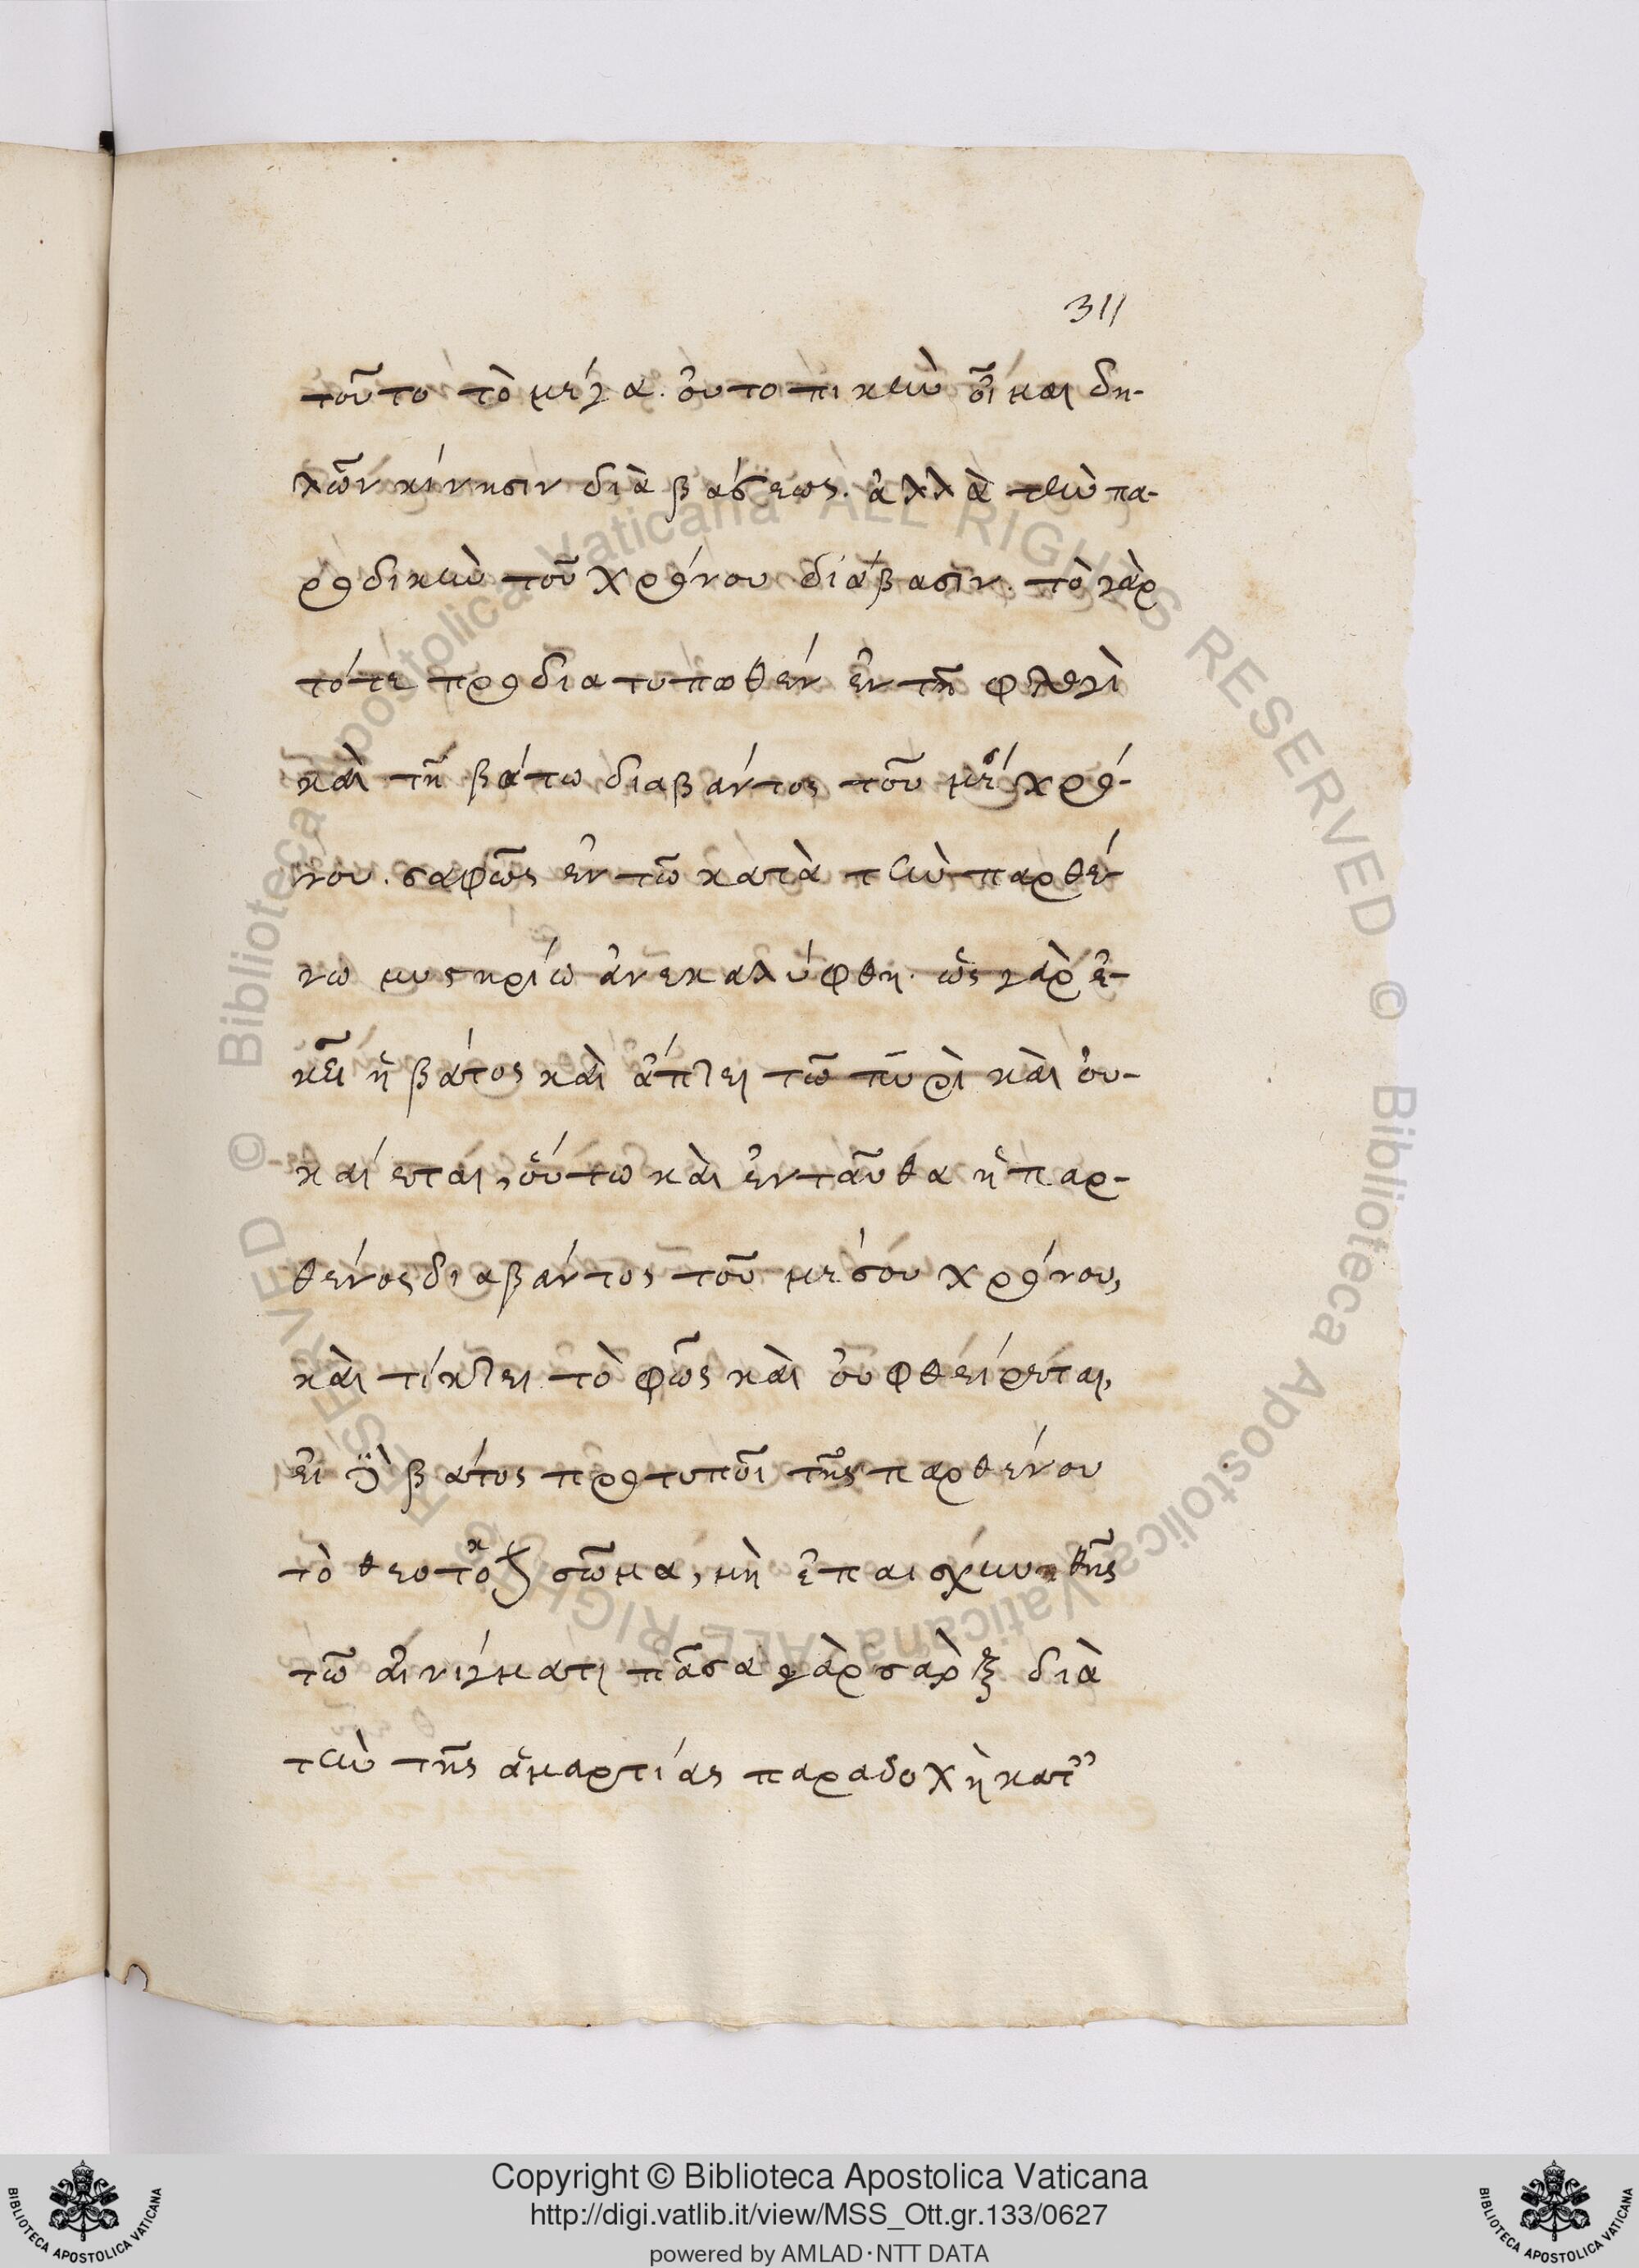 311
τοῦτο τὸ μέγα. οὐ τοπικὴν οἶμαι δη-
λῶν κίνησιν διαβάσεως. ἀλλὰ τὴν πα-
ροδικὴν τοῦ χρόνου διάβασιν. τὸ γὰρ
τότε προδιατυπωθέν ἐν τῆ φλογὶ
καὶ τῆ βάτω διαβάντος τοῦ μέσ χρό-
νου. σαφῶς ἐν τῶ κατὰ τὴν παρθέ-
νω μυστηρίω ἀνεκαλύφθη. ὡς γὰρ ἐ-
κεῖ ἡ βάτος καὶ ἅπτει τῶ πυρὶ καὶ οὐ-
καίεται, οὕτω καὶ ἐνταῦθα ἡ παρ-
θένος διαβάντος τοῦ μέσου χρόνου,
καὶ τίκτει τὸ φῶς καὶ οὐ φθείρεται,
εἰ δὲ βάτος προτυποῖ τῆς παρθένου
τὸ θεοτόκ σῶμα, μὴ ἐπαισχυνθῆς
τῶ αἰνίγματι πᾶσα γὰρ σὰρξ διὰ
τὴν τῆς ἁμαρτίας παραδοχὴ κατ'
Copyright © Biblioteca Apostolica Vaticana
http://digi.vatlib.it/view/MSS_Ott.gr.133/0627
powered by AMLAD·NTT DATA
BIBLIOTECA APOSTOLICA VATICANA
BIBLIOTECA APOSTOLICA VATICANA
© Biblioteca Apostolica Vaticana ALL RIGHTS RESERVED © Biblioteca Apostolica Vaticana ALL RIGHTS RESERVED